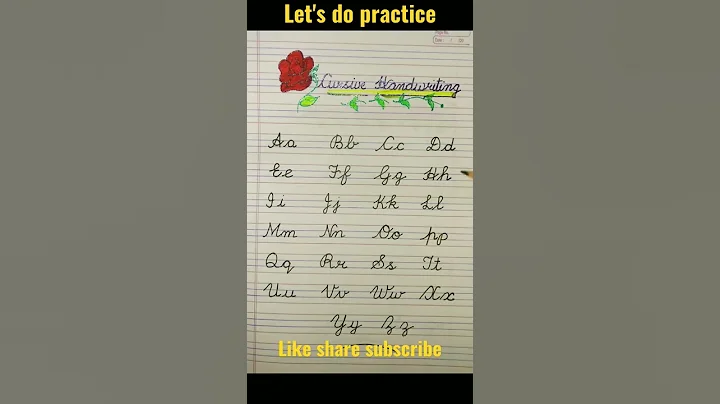 Let's do practice
Cursive Handwriting
Aa Bb Cc Dd
Ee Ff Gg Hh
Ii Jj Kk Ll
Mm Nn Oo pp
Qq Rr Ss Tt
Uu Vv Ww Xx
Yy Zz
Like share subscribe